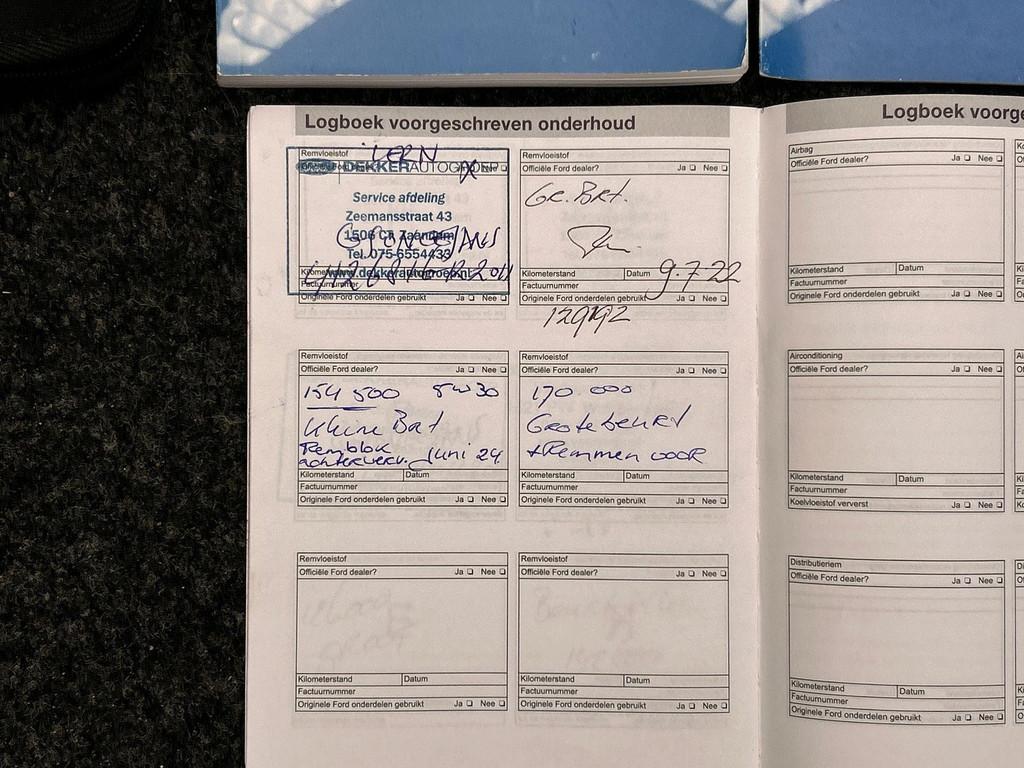 Logboek voorgeschreven onderhoud
Remvloeistof
DEKKERAUTOGROEP
Service afdeling
Zeemansstraat 43
1506 CT Zaandam
Tel. 075-6554433
www.dekkerautogroep.nl
Originele Ford onderdelen gebruikt Ja Nee
Remvloeistof
Officiële Ford dealer? Ja Nee
Gr. Brt.
Kilometerstand Datum 9-7-22
Factuurnummer
Originele Ford onderdelen gebruikt Ja Nee
Remvloeistof
Officiële Ford dealer? Ja Nee
154 500 5w30
Kleine Brt
Remblok
achterverv. Juni 24
Kilometerstand Datum
Factuurnummer
Originele Ford onderdelen gebruikt Ja Nee
Remvloeistof
Officiële Ford dealer? Ja Nee
170 000
Grote beurt
+Remmen voor
Kilometerstand Datum
Factuurnummer
Originele Ford onderdelen gebruikt Ja Nee
Remvloeistof
Officiële Ford dealer? Ja Nee
Kilometerstand Datum
Factuurnummer
Originele Ford onderdelen gebruikt Ja Nee
Remvloeistof
Officiële Ford dealer? Ja Nee
Kilometerstand Datum
Factuurnummer
Originele Ford onderdelen gebruikt Ja Nee
Logboek
Airbag
Officiële Ford dealer? Ja Nee
Kilometerstand Datum
Factuurnummer
Originele Ford onderdelen gebruikt Ja Nee
Airconditioning
Officiële Ford dealer? Ja Nee
Kilometerstand Datum
Factuurnummer
Koelvloeistof ververst Ja Nee
Distributieriem
Officiële Ford dealer? Ja Nee
Kilometerstand Datum
Factuurnummer
Originele Ford onderdelen gebruikt Ja Nee